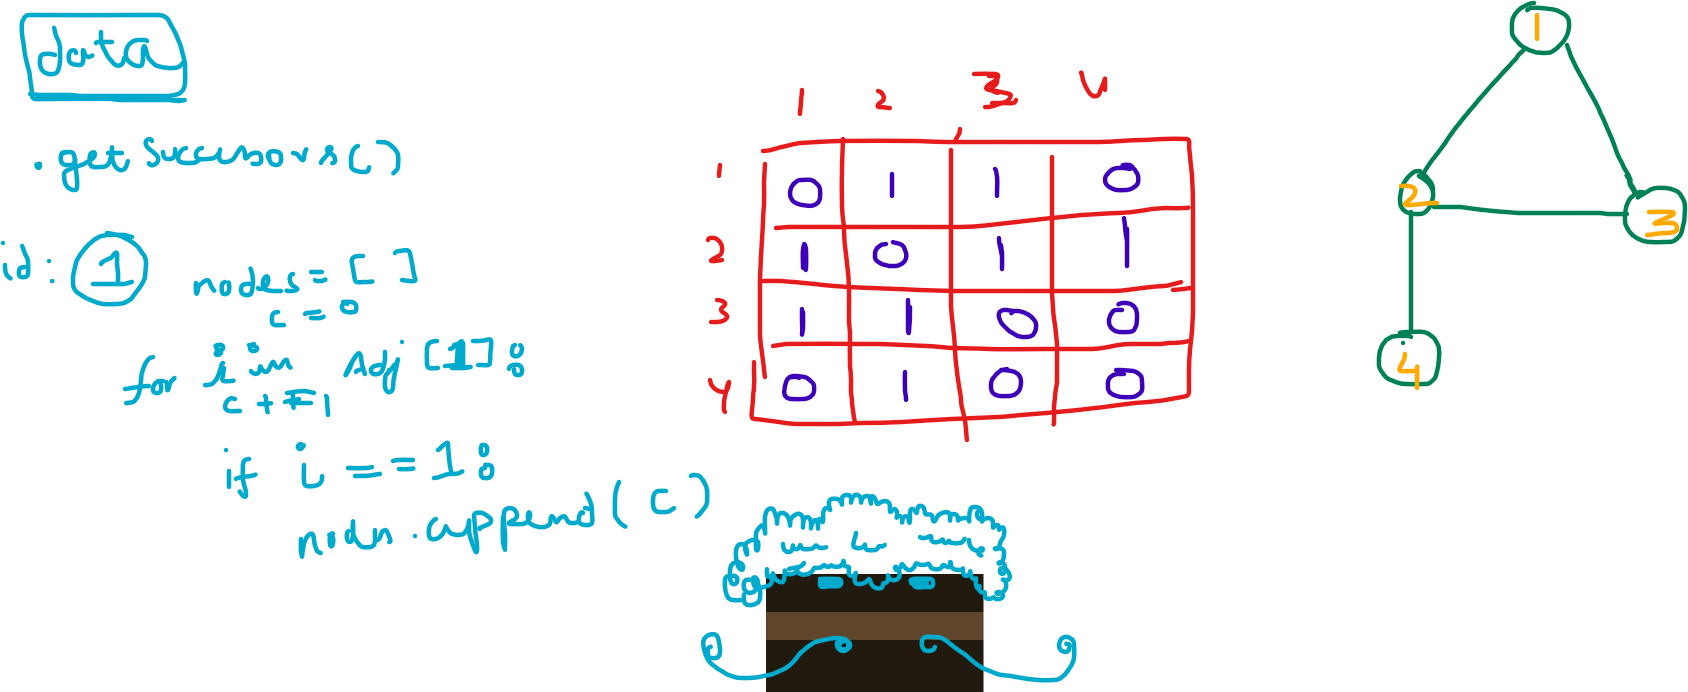 data
.getSuccessors()
id: 1
nodes = [ ]
c = 0
for i in Adj [1] :
c += 1
if i == 1 :
nodes.append( c )
1 2 3 4
1 0 1 1 0
2 1 0 1 1
3 1 1 0 0
4 0 1 0 0
1
2
3
4